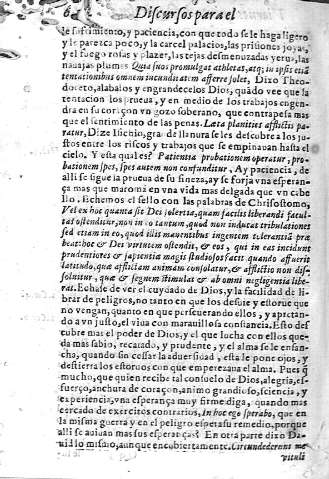 6 Discursos para el
le sufrimiento, y paciencia, con que todo se le haga ligero
y le parezca poco, y la carcel palacios, las prisiones joyas,
y el fuego rosas y plazer, las tejas desmenuzadas yerua, las
nauajas plumas Quia suos promulgat athletas, atq; in ipsis etiã
tentationibus omnem incunditatem afferre solet, Dixo Theo-
doreto, alabalos y engrandecelos Dios, quãdo vee que la
tentacion los prueua, y en medio de los trabajos engen-
dra en su coraçon vn gozo soberano, que contrapesa mas
que el sentimiento de las penas. Lata planities afflictis pa-
ratur, Dize Isichio, gran de llanura se les descubre a los ju-
stos entre los riscos y trabajos que se empinauan hasta el
cielo. Y esta qual es? Patientia probationem operatur, pro-
bationem spes, spes autem non confunditur, Ay paciencia, de
alli se sigue la prueua de su fineza, ay se forja vna esperan-
ça mas que maroma en vna vida mas delgada que vn cabe
llo. Echemos el sello con las palabras de Chrisostomo,
Vel ex hoc quanta sit Dei solertia, quam facilis liberandi facul-
tas ostenditur, non in eo tantum, quod non inducat tribulationes
sed etiam in eo, quod illis inuentibus ingentem tolerantiã præ
beat: hoc & Dei virtutem ostendit, & eos, qui in eas incidunt
prudentiores & sapientia magis studiosos facit quando affuerit
latitudo, quæ afflictam animam consolatur, & afflictio non dis-
soluitur, quæ & segnem stimulat & ab omni negligentia libe-
rat. Echase de ver el cuydado de Dios, y la facilidad de li-
brar de peligros, no tanto en que los desuie y estorue que
no vengan, quanto en que perseuerando ellos, y apretan-
do a vn justo, el viua con marauillosa confiança. Esto des
cubre mas el poder de Dios, y el que lucha con ellos que-
da mas sabio, recatado, y prudente, y el alma se le ensan-
cha, quando sin cessar la aduersidad, esta le pone ojos, y
destierra los estoruos con que emperezaua el alma. Pues q̃
mucho, que quien recibe tal consuelo de Dios, alegria, es-
fuerço, anchura de coraçon, animo grandioso, sciencia, y
experiencia, vna esperança muy firme diga, quando mas
cercado de exercitos contrarios, in hoc ego sperabo, que en
la misma guerra y en el peligro esperasu remedio, porque
alli se auiuan mas sus esperanças? En otra parte dixo Da-
uid lo mismo, aunque encubiertamente. Circundederunt me
vituli